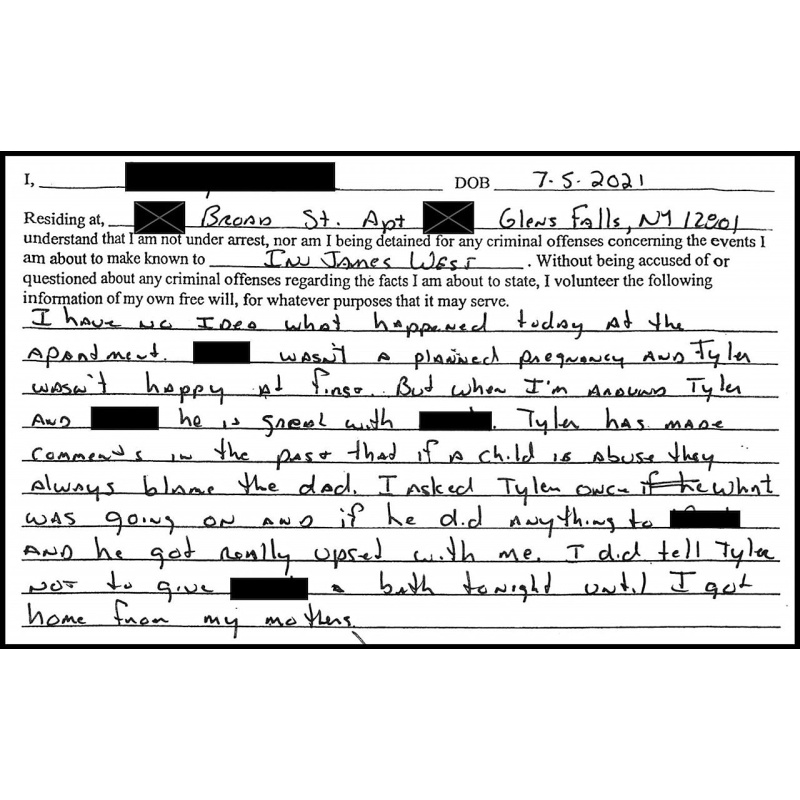 I, DOB 7-5-2021
Residing at, BROAD St. Apt Glens Falls, NY 12801
understand that I am not under arrest, nor am I being detained for any criminal offenses concerning the events I
am about to make known to INV JAMES WEST. Without being accused of or
questioned about any criminal offenses regarding the facts I am about to state, I volunteer the following
information of my own free will, for whatever purposes that it may serve.
I have no Idea what happened today at the
Apartment. wasn't a planned pregnancy AND Tyler
wasn't happy at first. But when I'm around Tyler
AND he is great with . Tyler has made
comments in the past that if a child is abuse they
always blame the dad. I asked Tyler once if he what
was going on and if he did anything to
AND he got really upset with me. I did tell Tyler
not to give a bath tonight until I got
home from my mothers.